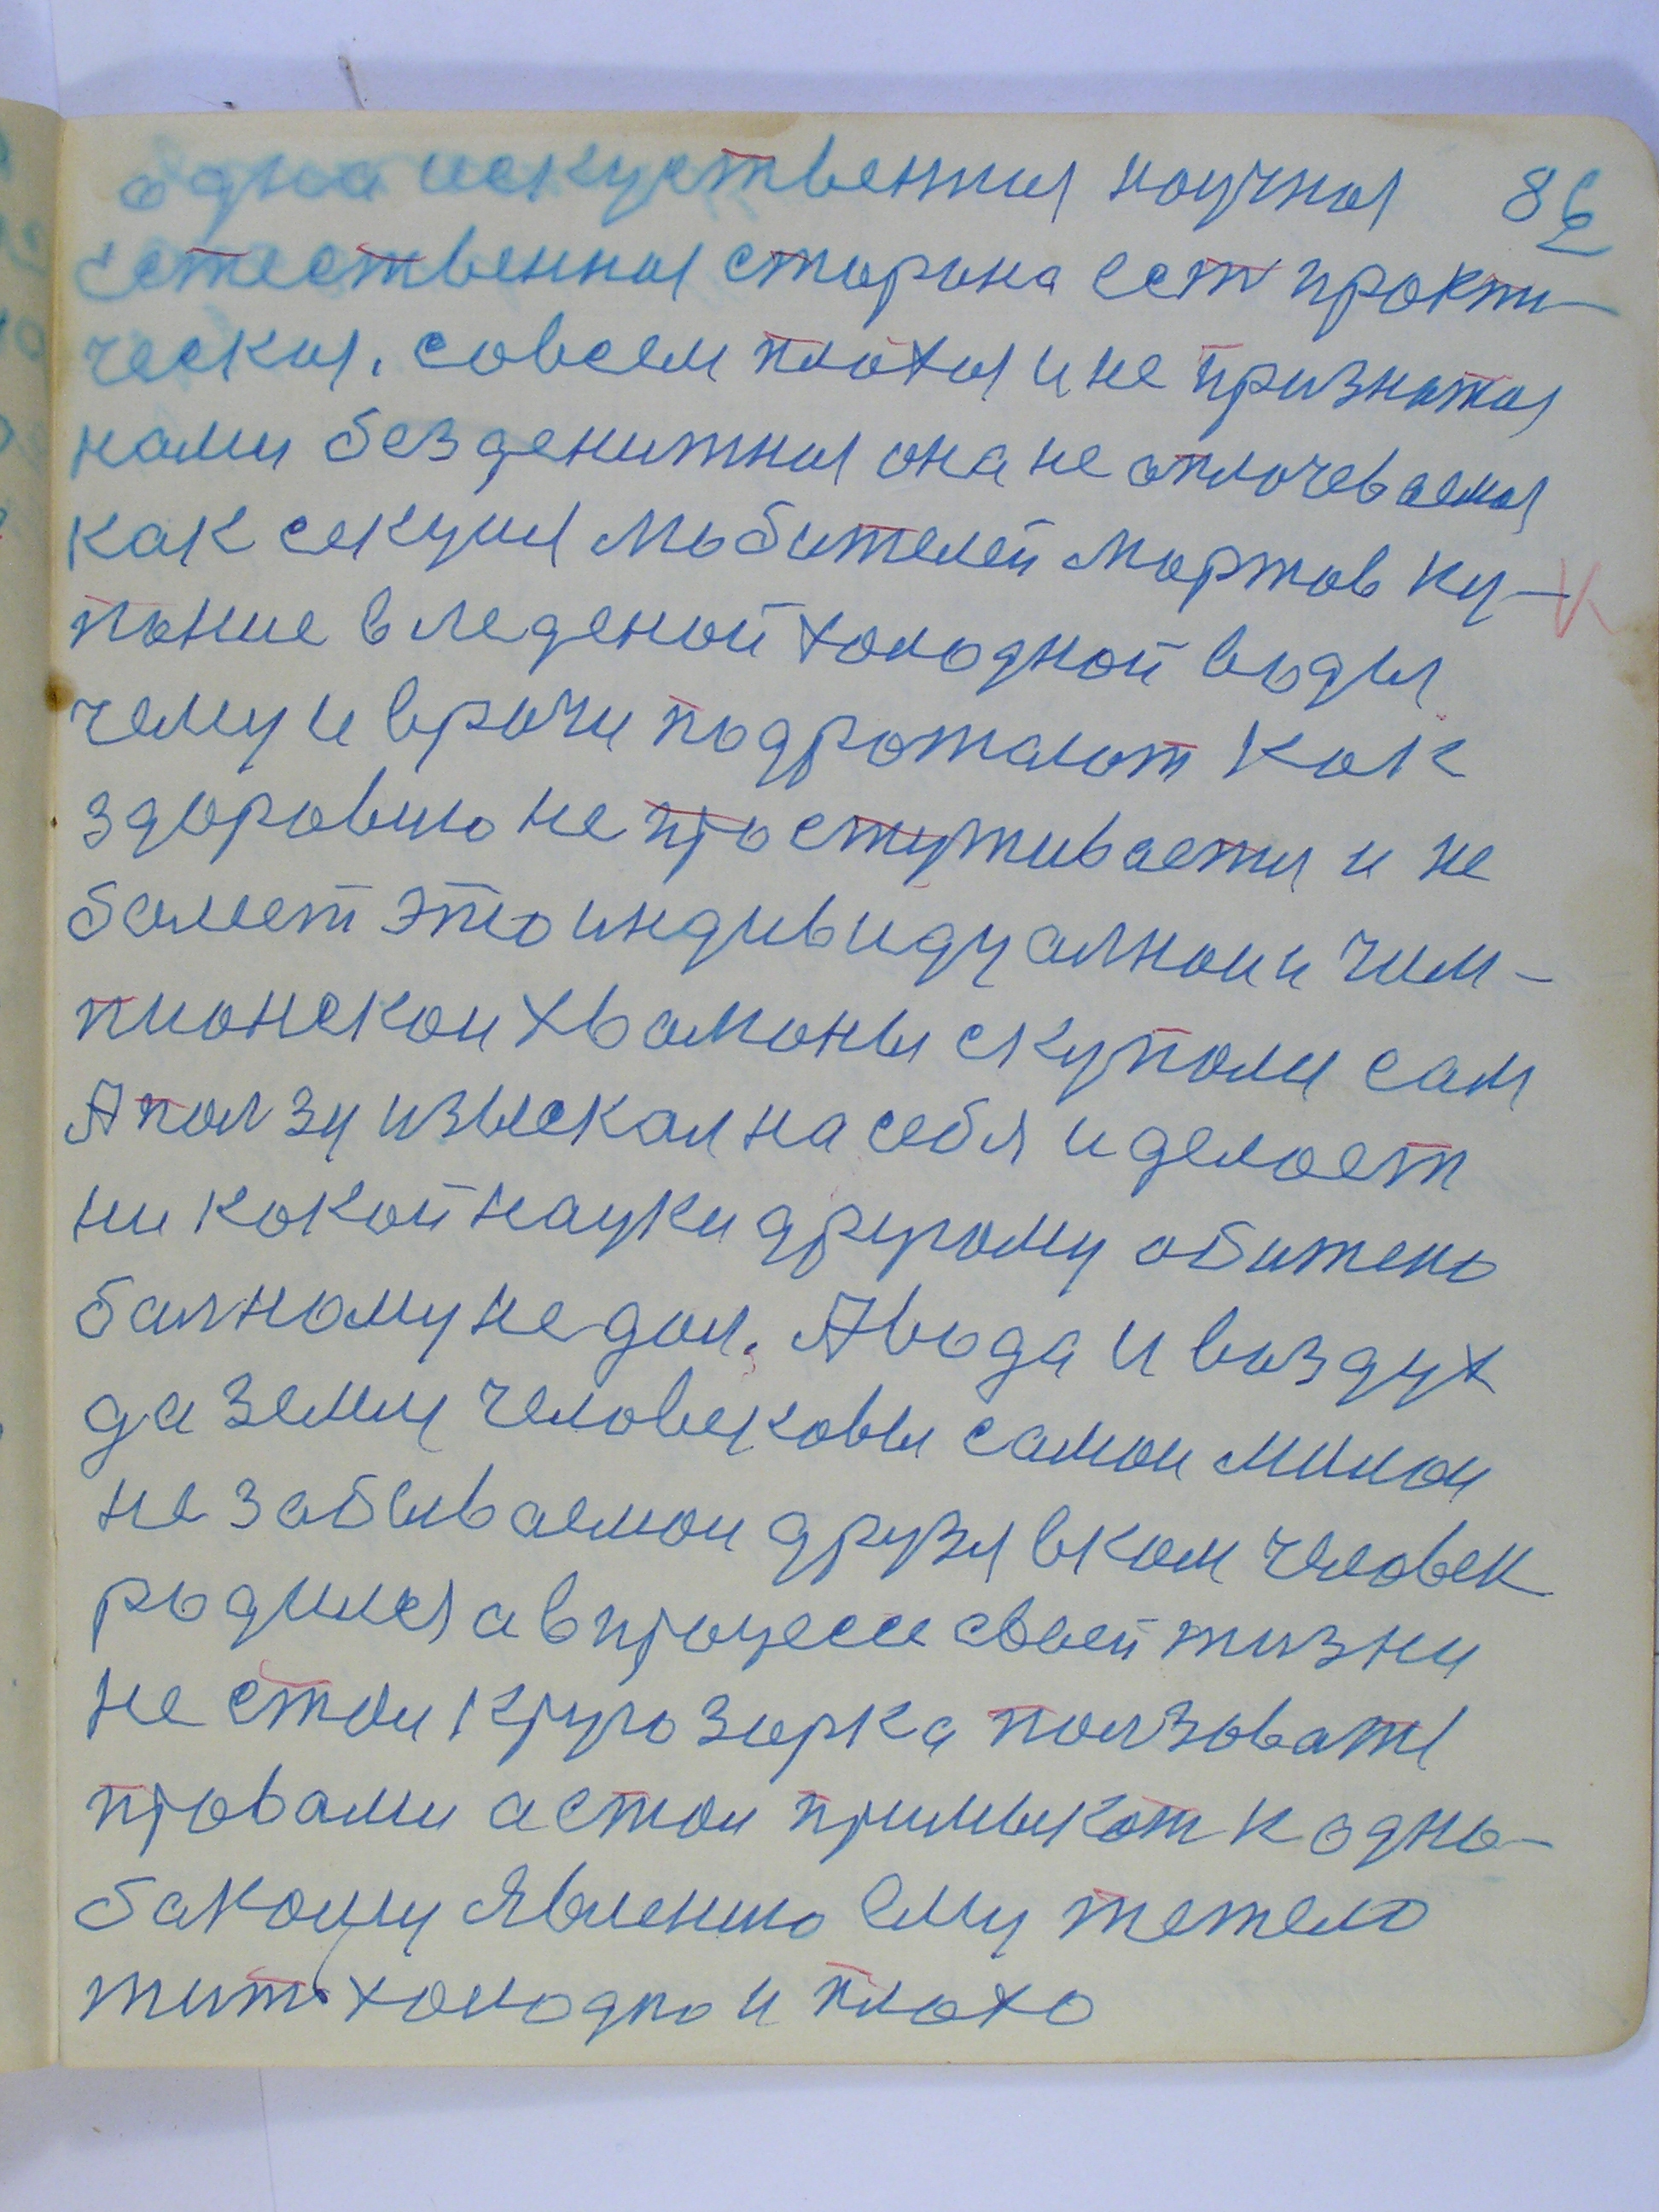 одна искуственная научная 86
естественная сторона ест практи-
ческая. совсем плохая и не признатая
нами без денижная она не оплочеваемая
как секция любителей моржов ку-
пание в леденой холодной воды
чему и врачи подрожают как
здоровию не простуживается и не
балеет это индивидуалнои чим-
пионскои хвамоны скупали сам
А ползу изыскал на себя и делоет
ни кокой науки другому обижено
балному не дал. А вода и воздух
да земля человековы самои милои
не забываемои друзя в ком человек
родился а в процессе своей жизни
не стои кругозорка ползоватся
провами а стои примыкот к одно-
бакому явлению ему тежело
жит холодно и плохо